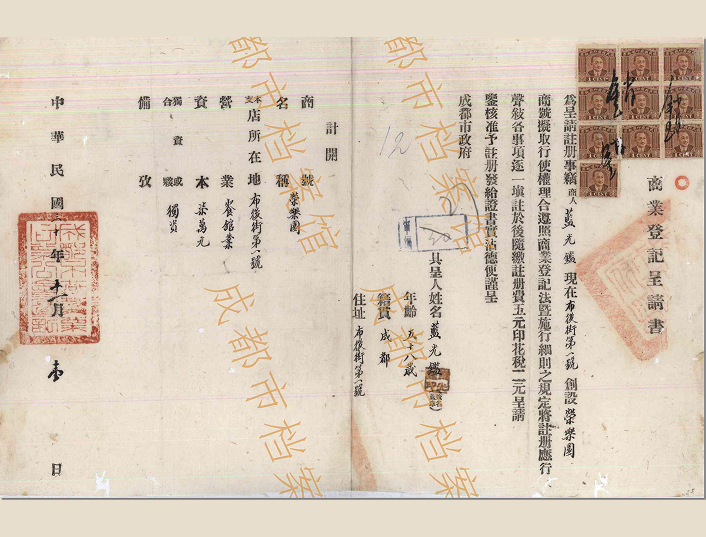 商業登記呈請書
為呈請註册事竊商人藍光鑑現在布後街第一號創設榮樂園
商號擬取行使權理合遵照商業登記法暨施行細則之規定將註册應行
聲敍各事項逐一填註於後隨繳註册費五元印花稅二元呈請
鑒核准予註册發給證書實沾德便謹呈
成都市政府
具呈人姓名藍光鑑
年齡五十八歲
籍貫成都
住址布後街第一號
12
計開
商號名稱榮樂園
本支店所在地布後街第一號
營業餐館業
資本柒萬元
獨資或合夥獨資
備攷
中華民國三十年十一月壹日
成都市档案馆
成都市档案馆
成都市档案
成都市档案